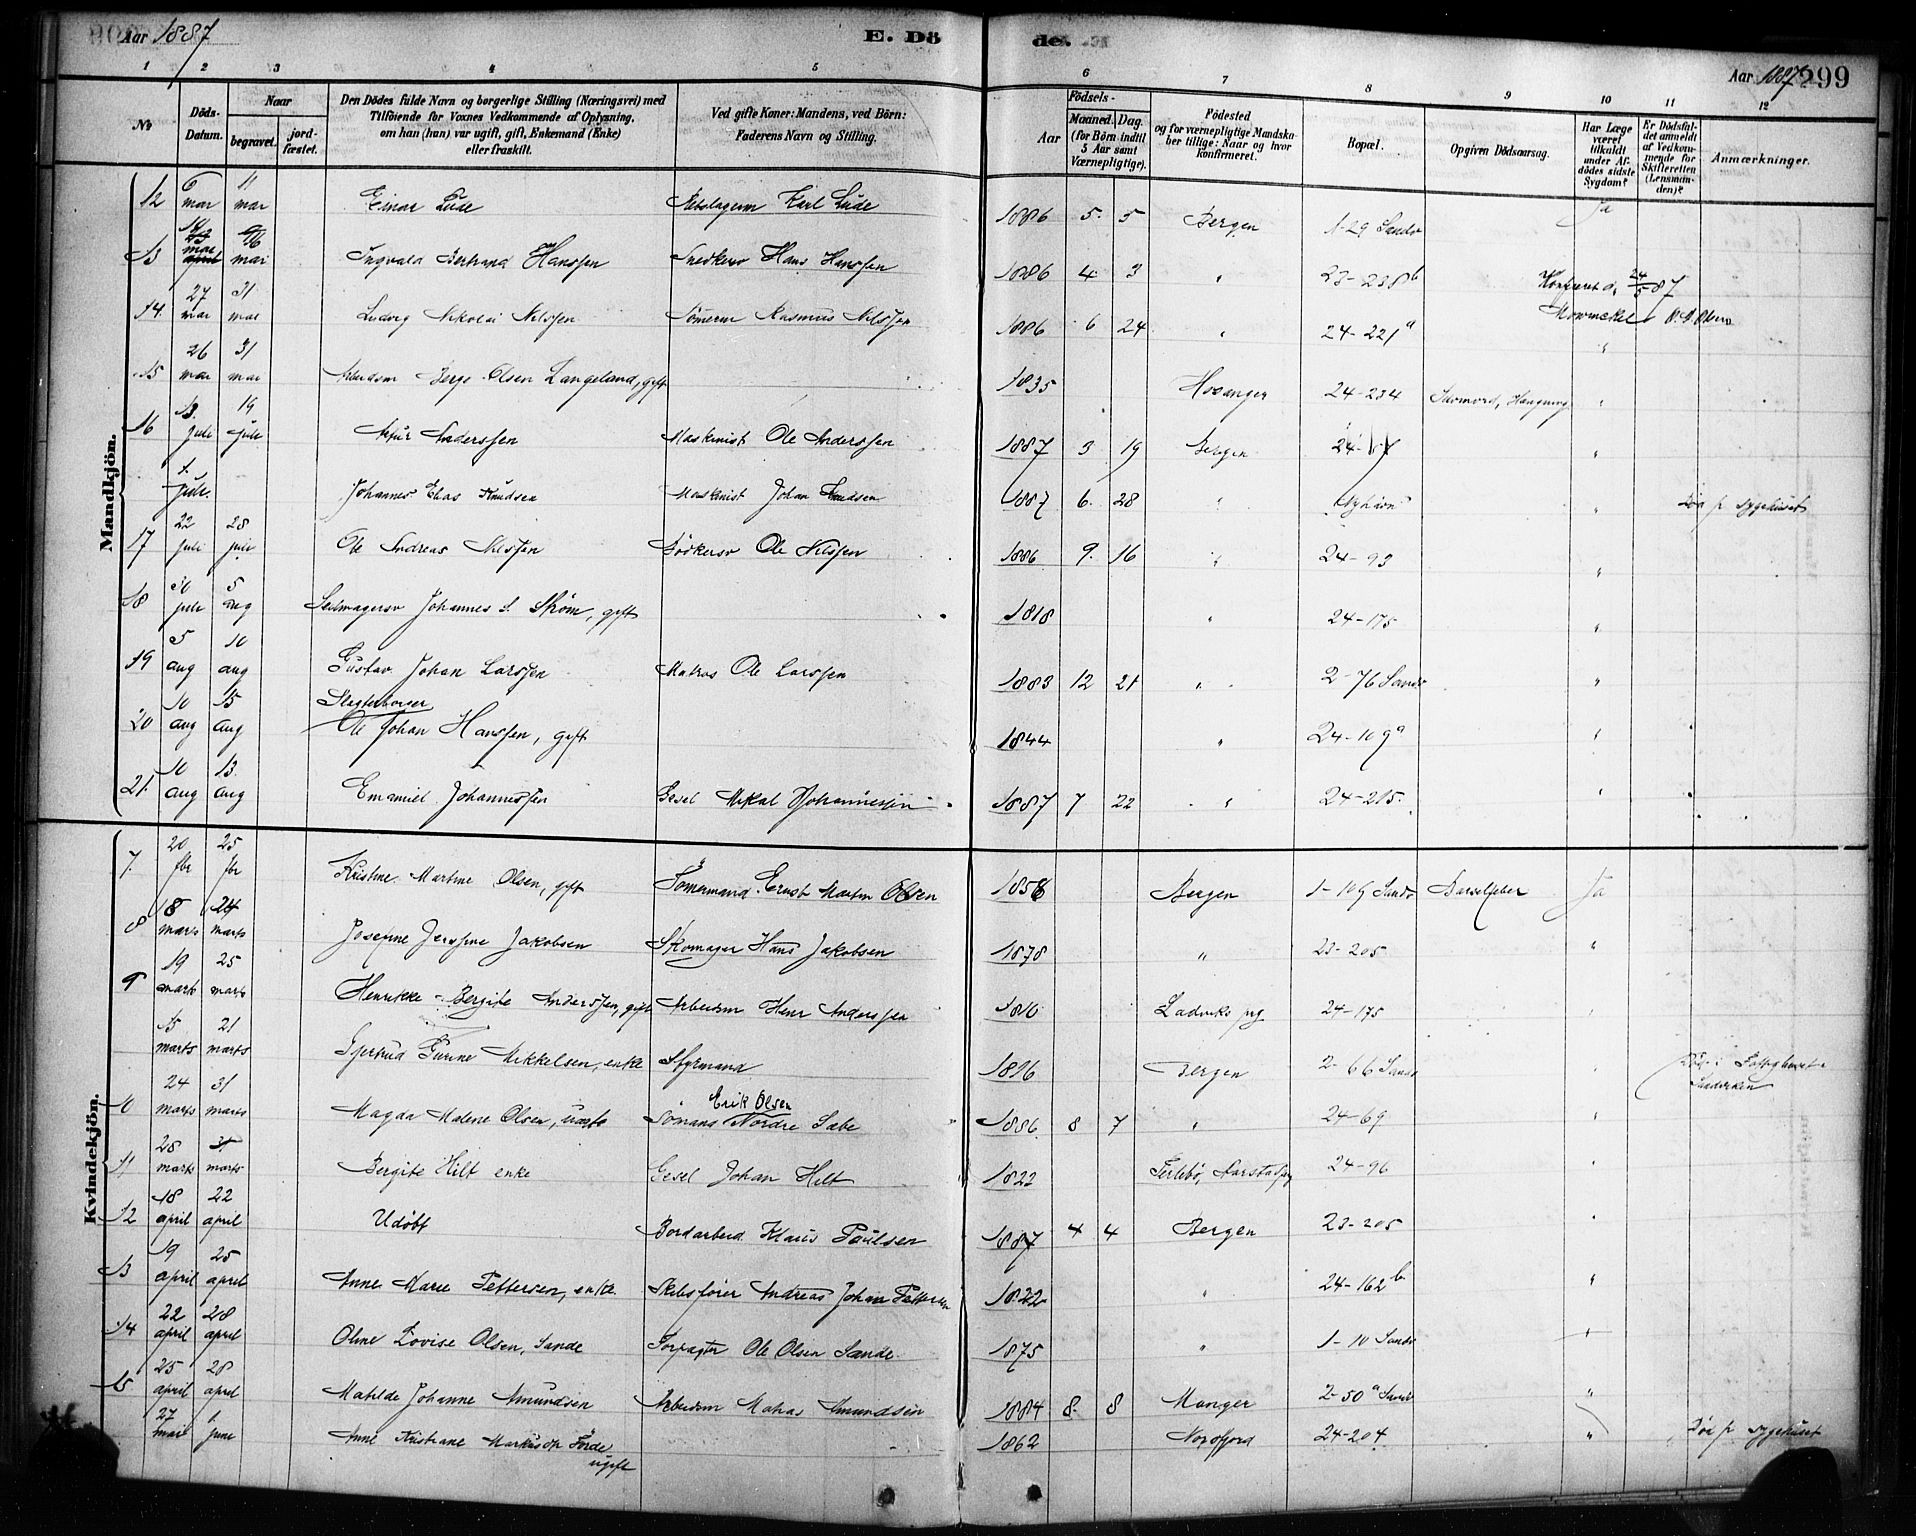 Aar 1887
E. Dö
de.
Aar 1887 299
1 2 3 4 5 6 7 8 9 10 11 12
No
Döds-Datum.
Naar
begravet.
jord-fæstet.
Den Dödes fulde Navn og borgerlige Stilling (Næringsvei) med
Tilföiende for Voxnes Vedkommende af Oplysning,
om han (hun) var ugift, gift, Enkemand (Enke)
eller fraskilt.
Ved gifte Koner: Mandens, ved Börn:
Faderens Navn og Stilling.
Födsels-
Aar
Maaned. Dag.
(for Börn indtil
5 Aar samt
Værnepligtige).
Födested
og for værnepligtige Mandska-
ber tillige: Naar og hvor
konfirmeret.
Bopæl.
Opgiven Dödsaarsag.
Har Læge
været
tilkaldt
under Af-
dödes sidste
Sygdom?
Er Dödsfal-
det anmeldt
af Vedkom-
mende for
Skifteretten
(Lensman-
den)?
Anmærkninger.
Mandkjön.
12 6 mar 11 mar Einar Lude Karl Lude 1886 5. 5 Bergen 1-29 Sandv Ja
13 mai Ingvald Bertrand Hanssen Snedkersv Hans Hanssen 1886 4 3 " 23-238b
14. 27 mai 31 mai Ludvig Nikolai Nilssen Rasmus Nilssen 1886 6 24 " 24-221a "
15 26 mai 31 mai Arbeidsm Berge Olsen Langeland, gift 1835 Hosanger 24-234 Selvmord, Hængning "
16 13. juli 19 juli Anderssen Maskinist Ole Anderssen 1887 3 19 Bergen "
1. juli. Johannes Elias Knudsen Maskinist Johan Knudsen 1887 6. 28 " Nyhavn " Död p sygehuset
17 22 juli 28 juli Ole Andreas Nilssen Bödkersv Ole Nilssen 1886 9. 16 " 24-93 "
18 30 juli 5 aug Seilmagersv Johannes S. Strøm, gift 1818 " 24-175 "
19 5 aug 10 aug Gustav Johan Larssen Matros Ole Larssen 1883 12 21 " 2-76 Sandv "
20 10 aug 15 aug Slagterborger
Ole Johan Hanssen, gift 1844 " 24-109a "
21. 10 aug 13. aug Emanuel Johannessen Mikal Johannessen 1887 7 22 " 24-215. "
Kvindekjön.
7. 20 fbr 25 fbr Kristine Martine Olsen, gift Tömermand Ernst Martin Olsen 1858 Bergen 1-109 Sandv Barselfeber Ja
8 18 marts 24 marts Josefine Jakobsen Skomager Hans Jakobsen 1878 " 23-205 "
9 19 marts 25 marts Henrikke Bergite Anderssen, gift Arbeidsm Henr Anderssen Ladviks prg 24-175
15 marts 21 marts Gjertrud Gurine Mikkelsen, enke Styrmand Bergen 2-66 Sandv
10 24 marts 31 marts Magda Malene Olsen, Erik Olsen
Nordre 1886 8 7 " 24-69 "
11 28 marts 31 marts Bergite Hilt enke Johan Hilt 1822 24-96
12 18 april 22 april Udöbt Bordarbeid Klaus Paulsen 1887 4 4 Bergen 23-205
13 19 april 25 april Anne Marie Pettersen, enke. Skibsfører Andreas Johan Pettersen 1822 " 24-162b "
14 22 april 28 april Oline Lovise Olsen, Sande Forpagter Ole Olsen Sande. 1875 " 1-10 Sandv
15 25 april 28 april Matilde Johanne Amundsen Arbeidsm Matias Amundsen 1884 8. 8 Manger 2-50a Sandv "
27 mai 1 june Anne Kristiane
ugift 1862 Nordfjord 24-204. " Död p sygehuset